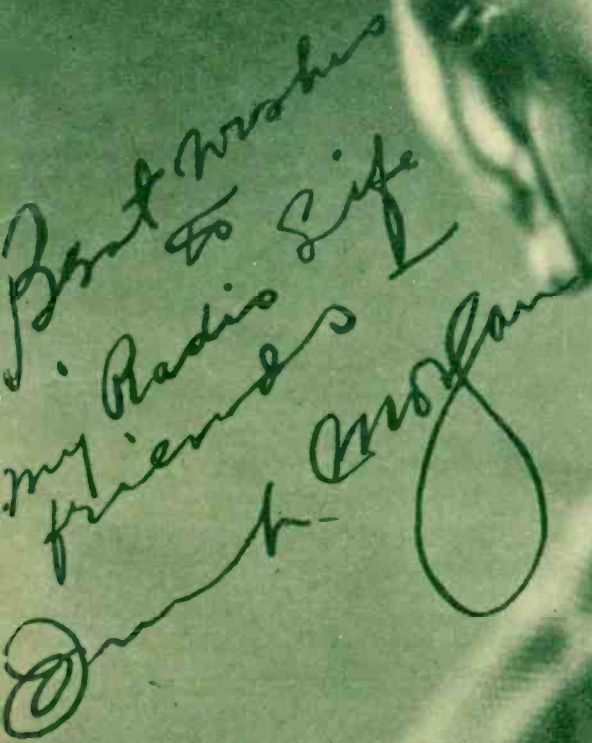 Best wishes
to
my Radio Life
friends
Frank Morgan